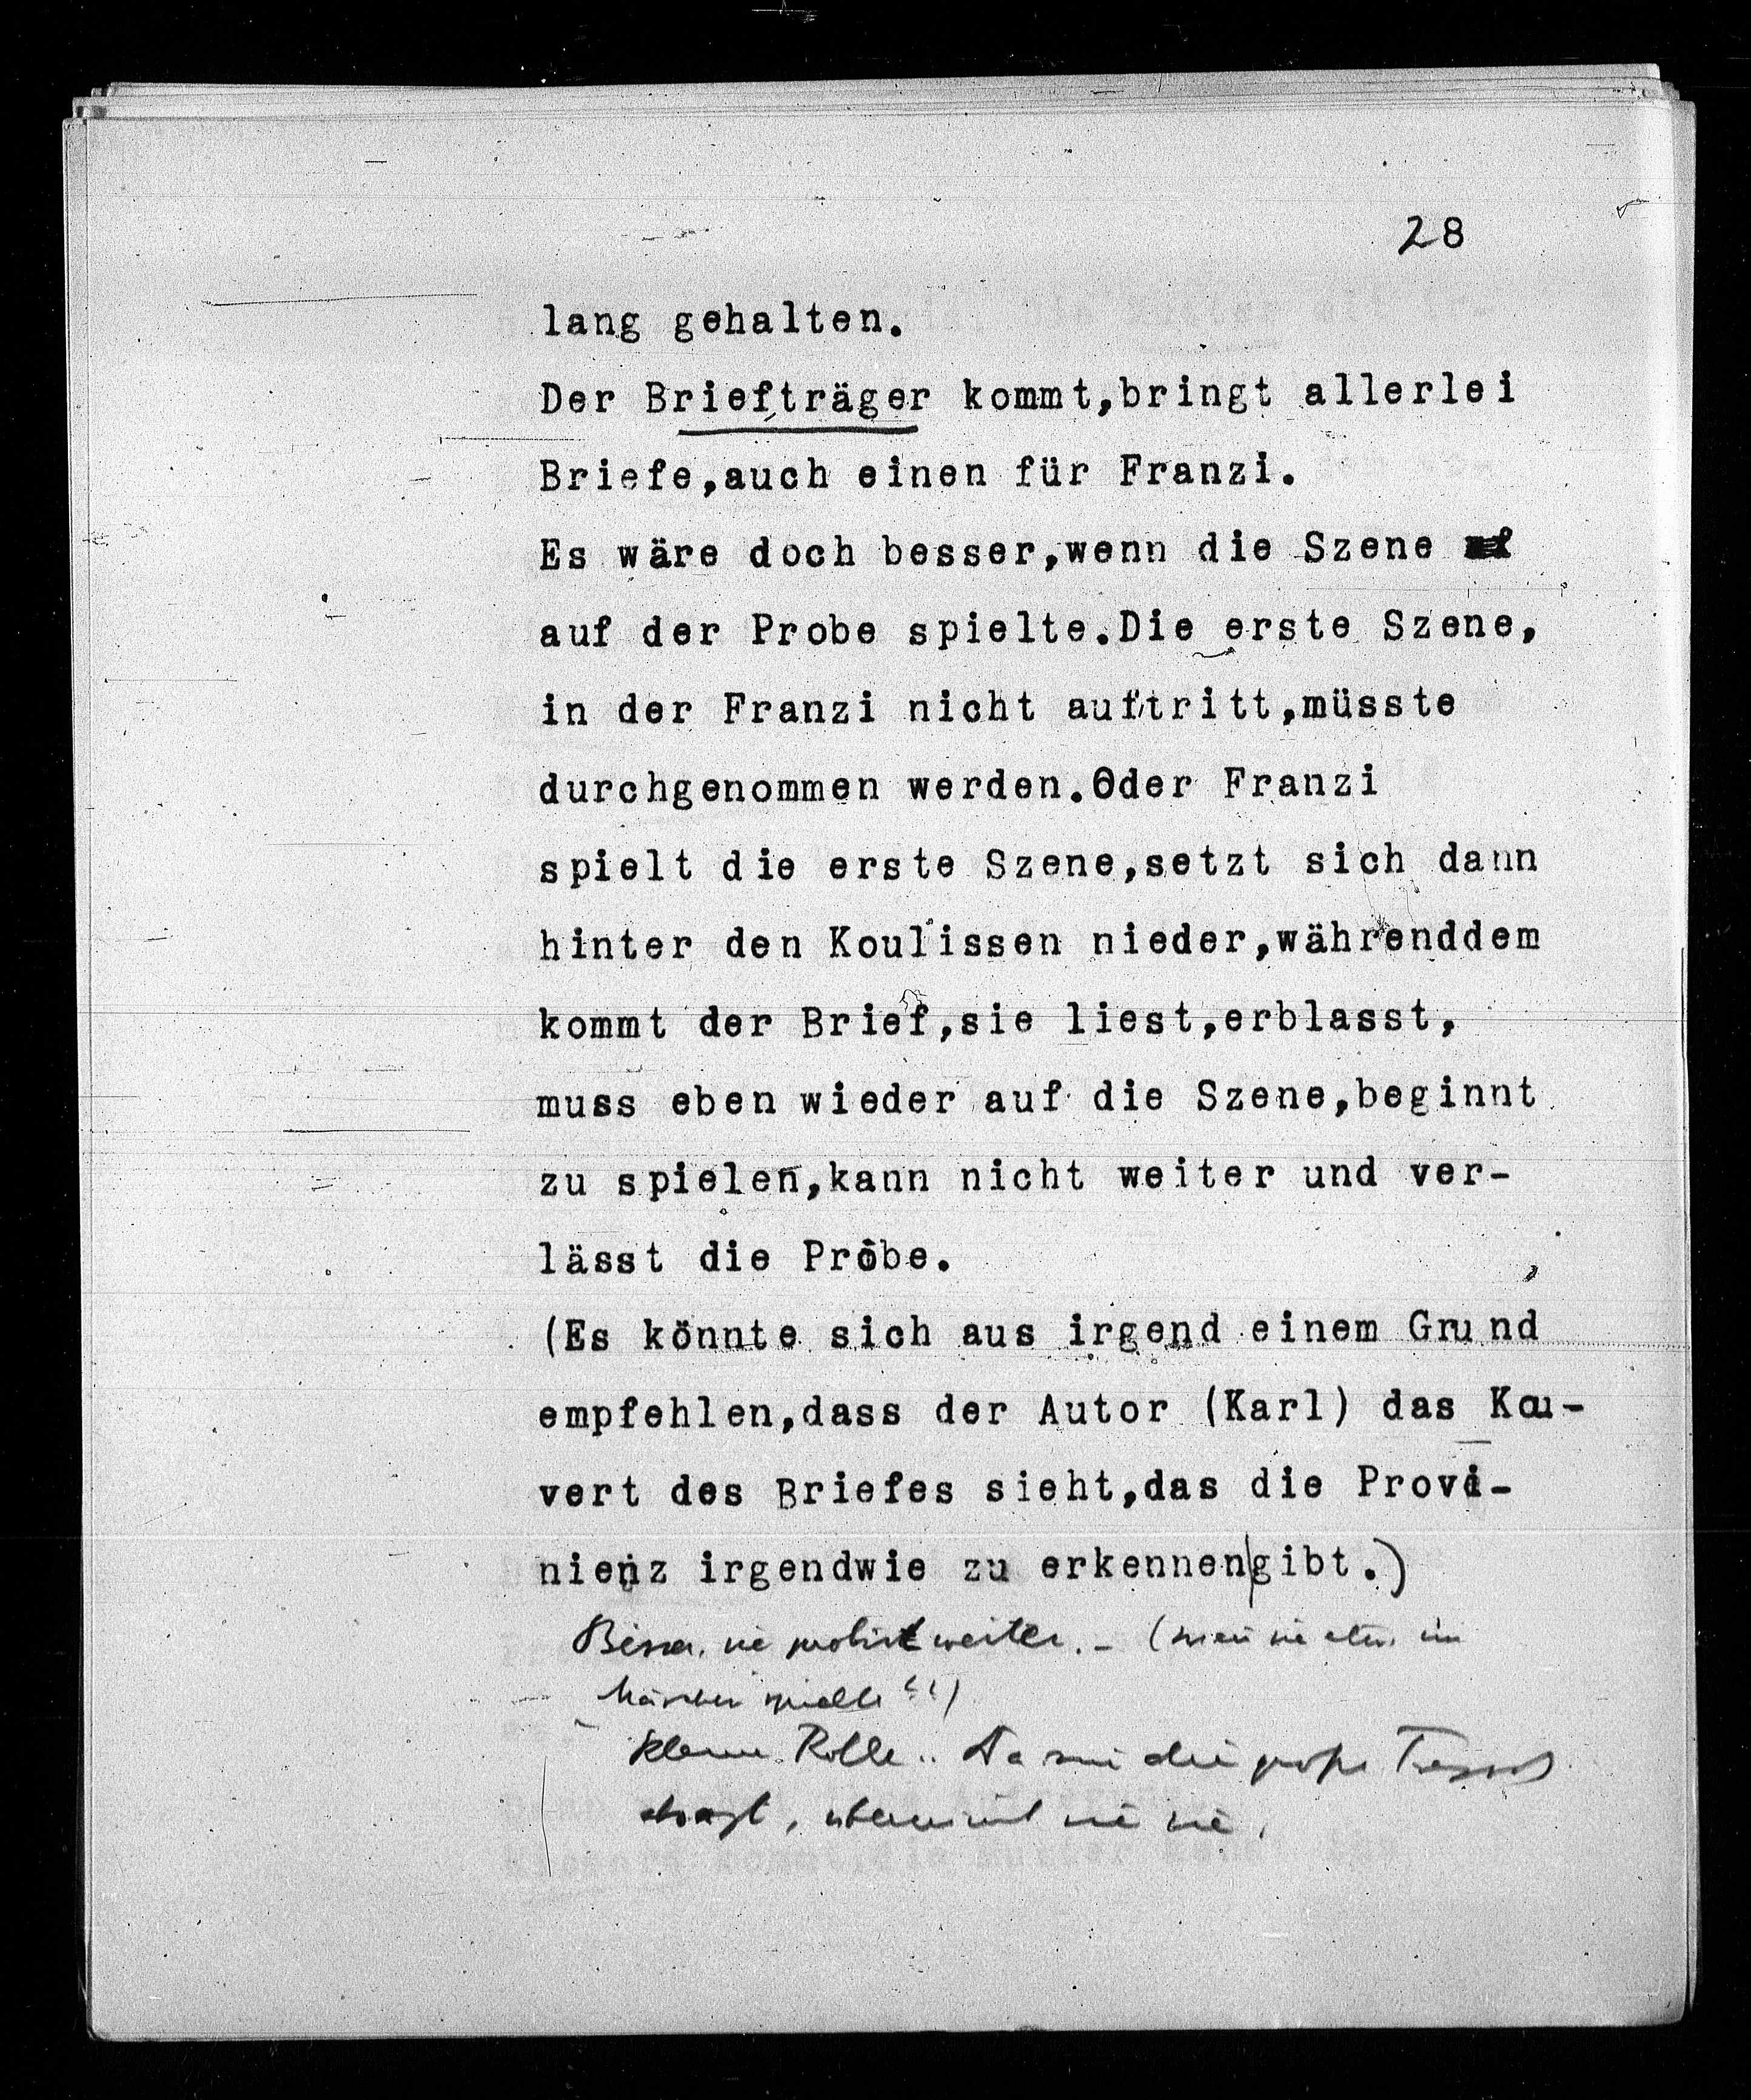 28
lang gehalten.
Der Briefträger kommt,bringt allerlei
Briefe,auch einen für Franzi.
Es wäre doch besser,wenn die Szene
auf der Probe spielte.Die erste Szene,
in der Franzi nicht auftritt,müsste
durchgenommen werden.Oder Franzi
spielt die erste Szene,setzt sich dann
hinter den Koulissen nieder,währenddem
kommt der Brief,sie liest,erblasst,
muss eben wieder auf die Szene,beginnt
zu spielen,kann nicht weiter und ver-
lässt die Probe.
(Es könnte sich aus irgend einem Grund
empfehlen,dass der Autor (Karl) das Kou-
vert des Briefes sieht,das die Provi-
nienz irgendwie zu erkennen gibt.)
Besser, sie probirt weiter. – (wenn sie etwa im
Märchen spielte!!)
kleine Rolle.. Da die große
absagt, übernimmt sie sie.